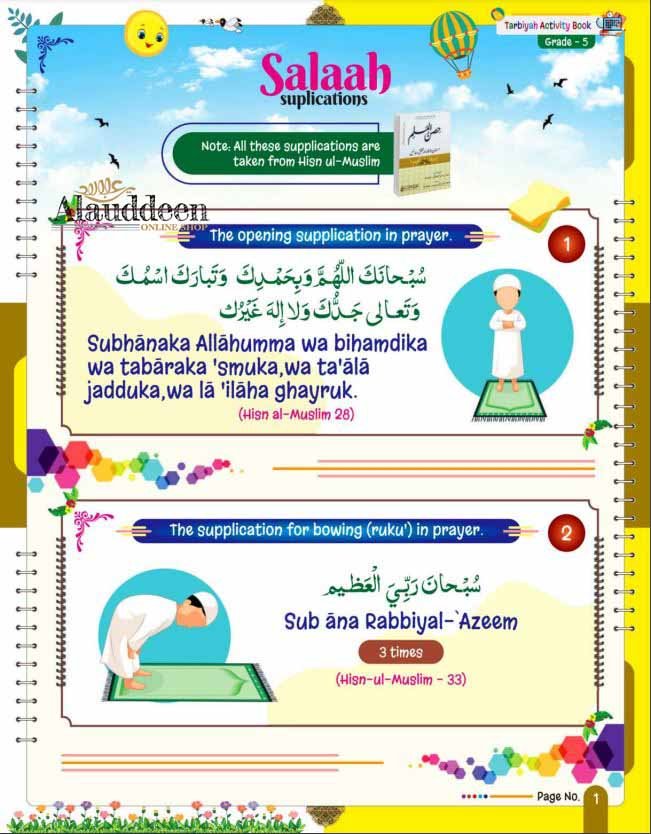 Tarbiyah Activity Book
Grade - 5
Salaah
suplications
Note: All these supplications are
taken from Hisn ul-Muslim
حصن المسلم
Alauddeen
ONLINE SHOP
The opening supplication in prayer.
1
سُبْحانَكَ اللّهُمَّ وَبِحَمْدِكَ وَتَبارَكَ اسْمُكَ
وَتَعالى جَدُّكَ وَلا إِلهَ غَيْرُك
Subhānaka Allāhumma wa bihamdika
wa tabāraka 'smuka,wa ta'ālā
jadduka,wa lā 'ilāha ghayruk.
(Hisn al-Muslim 28)
The supplication for bowing (ruku') in prayer.
2
سُبْحانَ رَبِّيَ الْعَظيم
Sub āna Rabbiyal-`Azeem
3 times
(Hisn-ul-Muslim - 33)
Page No. 1